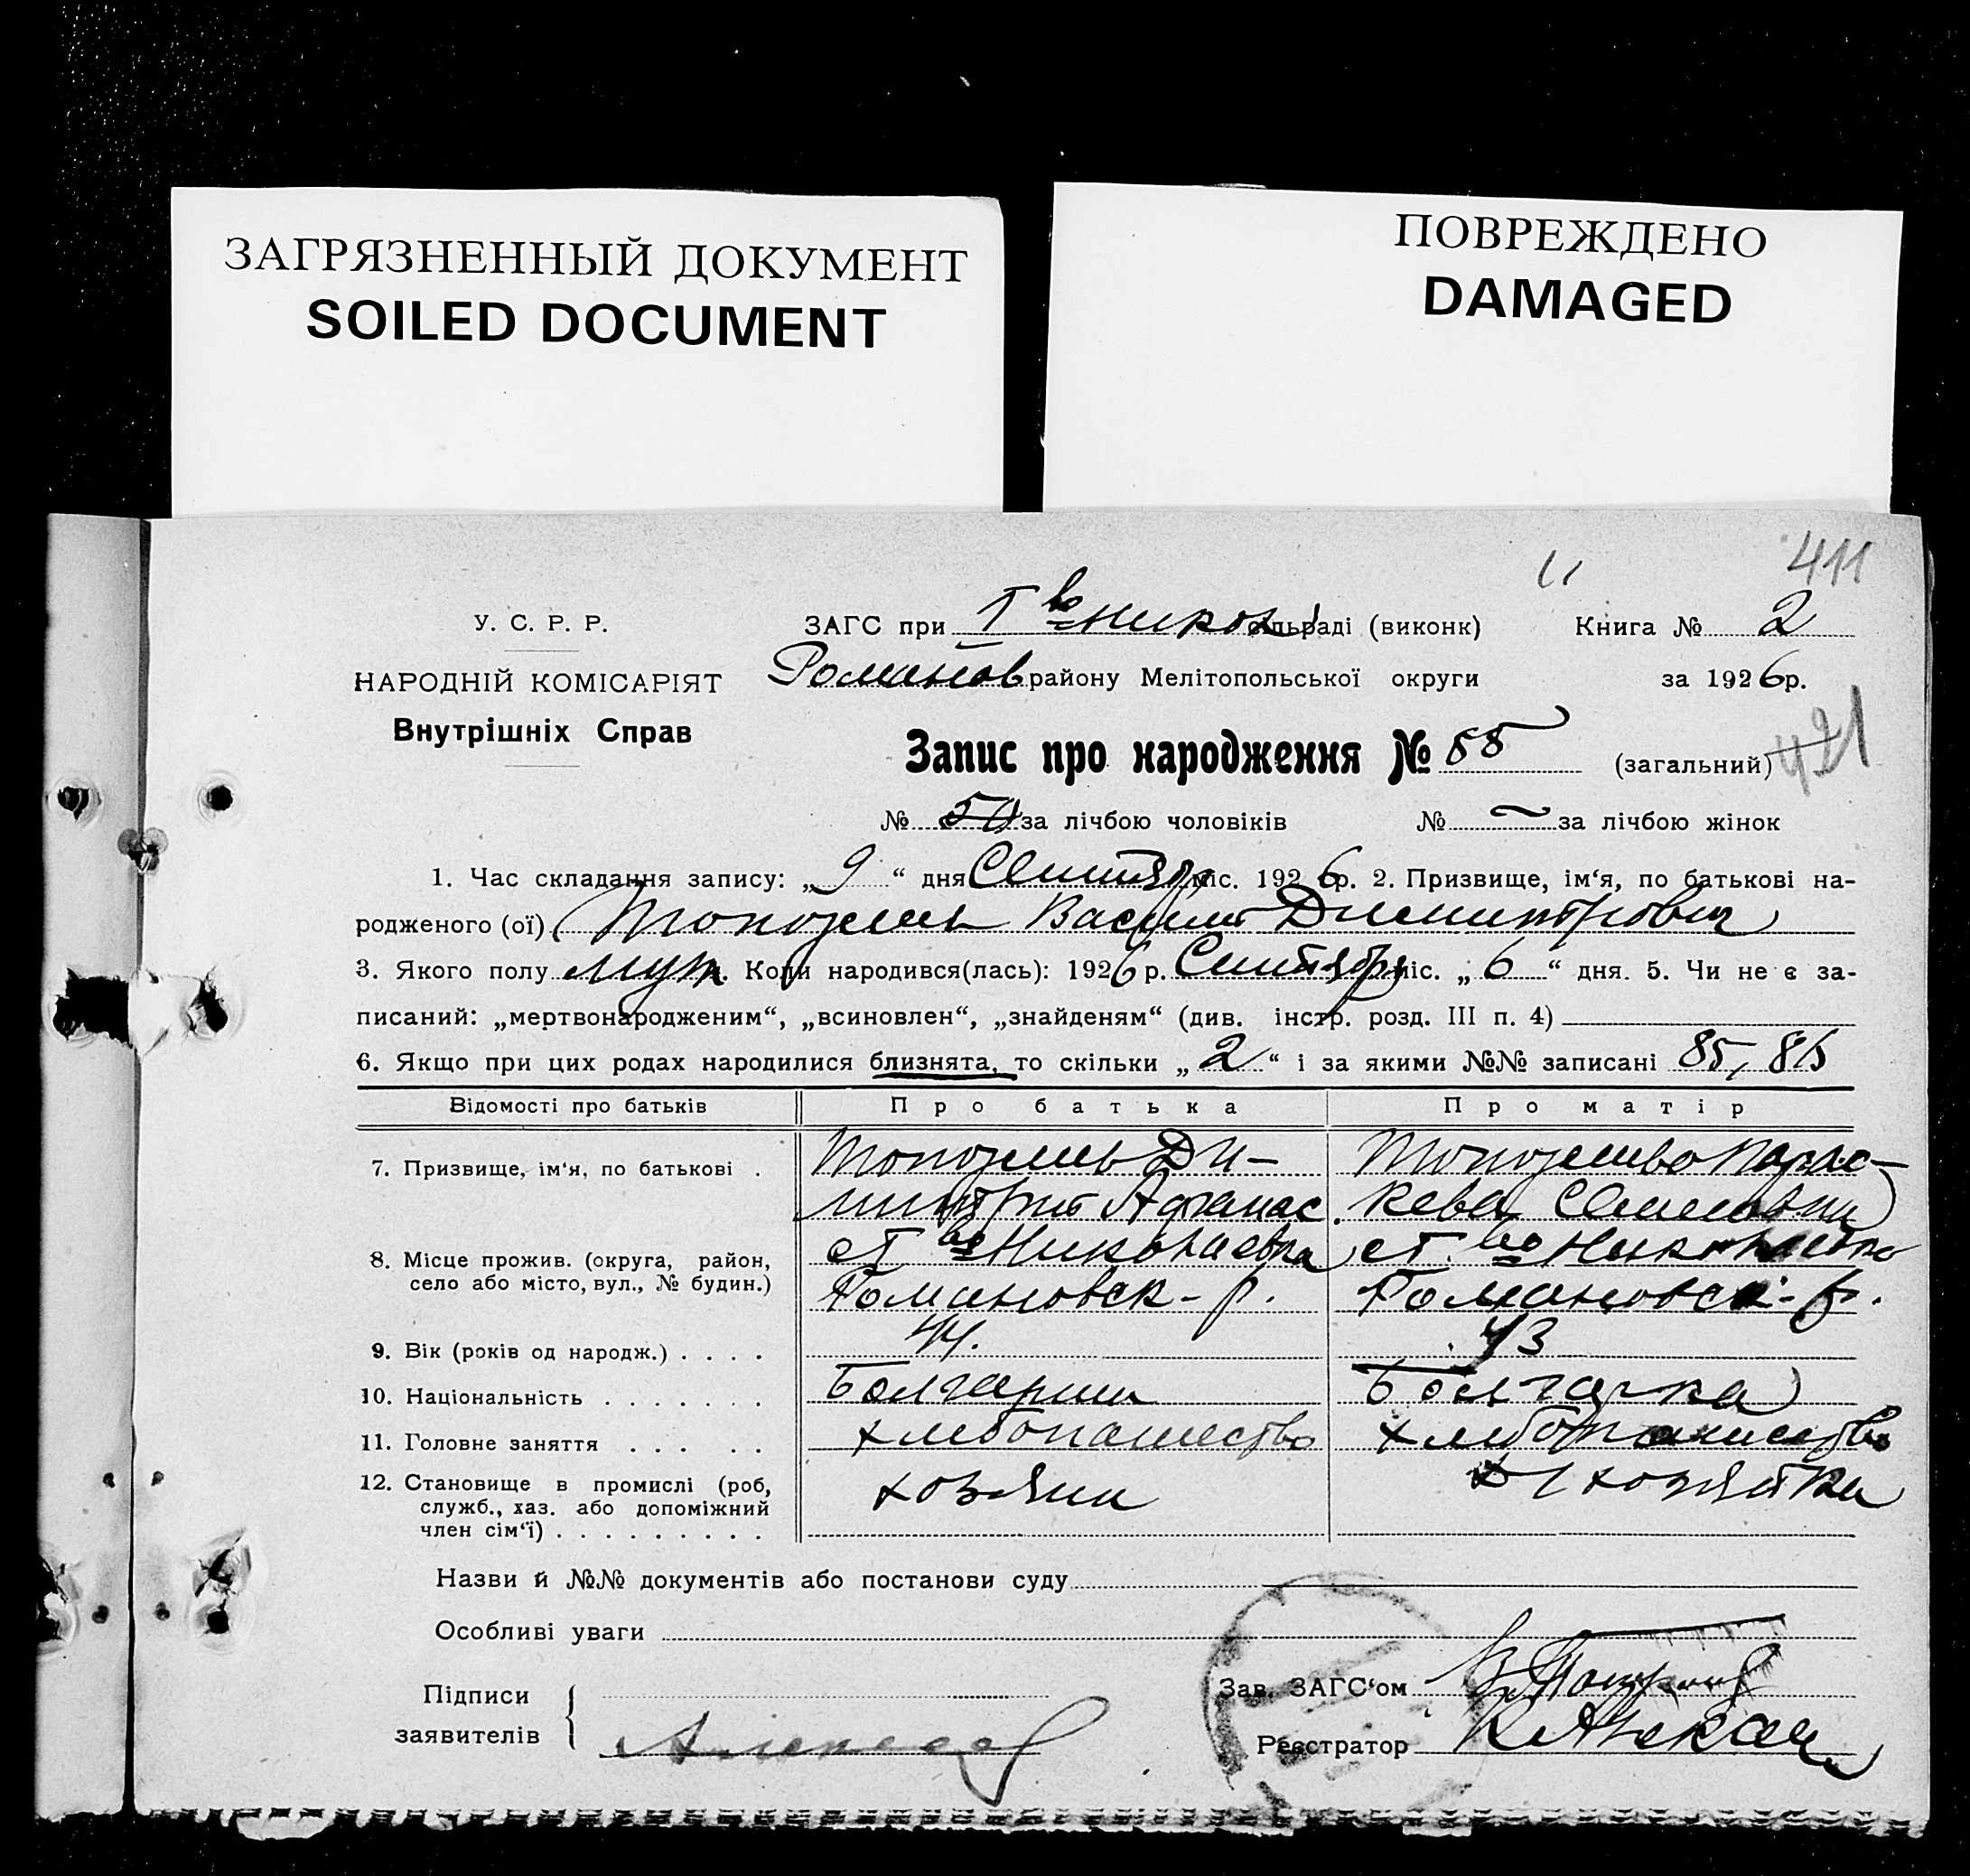 ЗАГРЯЗНЕННЫЙ ДОКУМЕНТ
SOILED DOCUMENT
ПОВРЕЖДЕНО
DAMAGED
411
У. С. Р. Р.
ЗАГС при сільраді (виконк) Книга № 2
НАРОДНІЙ КОМІСАРІЯТ
Романов району Мелітопольської округи за 1926 р.
Внутрішніх Справ
Запис про народження № 85 (загальний) 421
№ 54 за лічбою чоловіків № — за лічбою жінок
1. Час складання запису: „9“ дня Сентябр міс. 1926 р. 2. Призвище, ім‘я, по батькові на-
родженого (ої) Василий Димитрович
3. Якого полу муж. Коли народився(лась): 1926 р. Сентября міс. „6“ дня. 5. Чи не є за-
писаний: „мертвонародженим“, „всиновлен“, „знайденям“ (див. інстр. розд. III п. 4)
6. Якщо при цих родах народилися близнята, то скільки „2“ і за якими №№ записані 85, 86
Відомості про батьків Про батька Про матір
7. Призвище, ім‘я, по батькові . Ди- Парас-
митрий Афанас. кева Семеновна
8. Місце прожив. (округа, район, Николаевка Николаевка
село або місто, вул., № будин.) Романовск-р. Романовск-р.
9. Вік (років од народж.) . . . . 44. 43
10. Національність . . . . . . . Болгарин Болгарка
11. Головне заняття . . . . . хлебопашество хлебопашество
12. Становище в промислі (роб, хозяин хозяйка
служб., хаз. або допоміжний
член сім‘ї) . . . . . . . . .
Назви й №№ документів або постанови суду
Особливі уваги
Підписи
заявителів
Зав. ЗАГС‘ом
Реєстратор